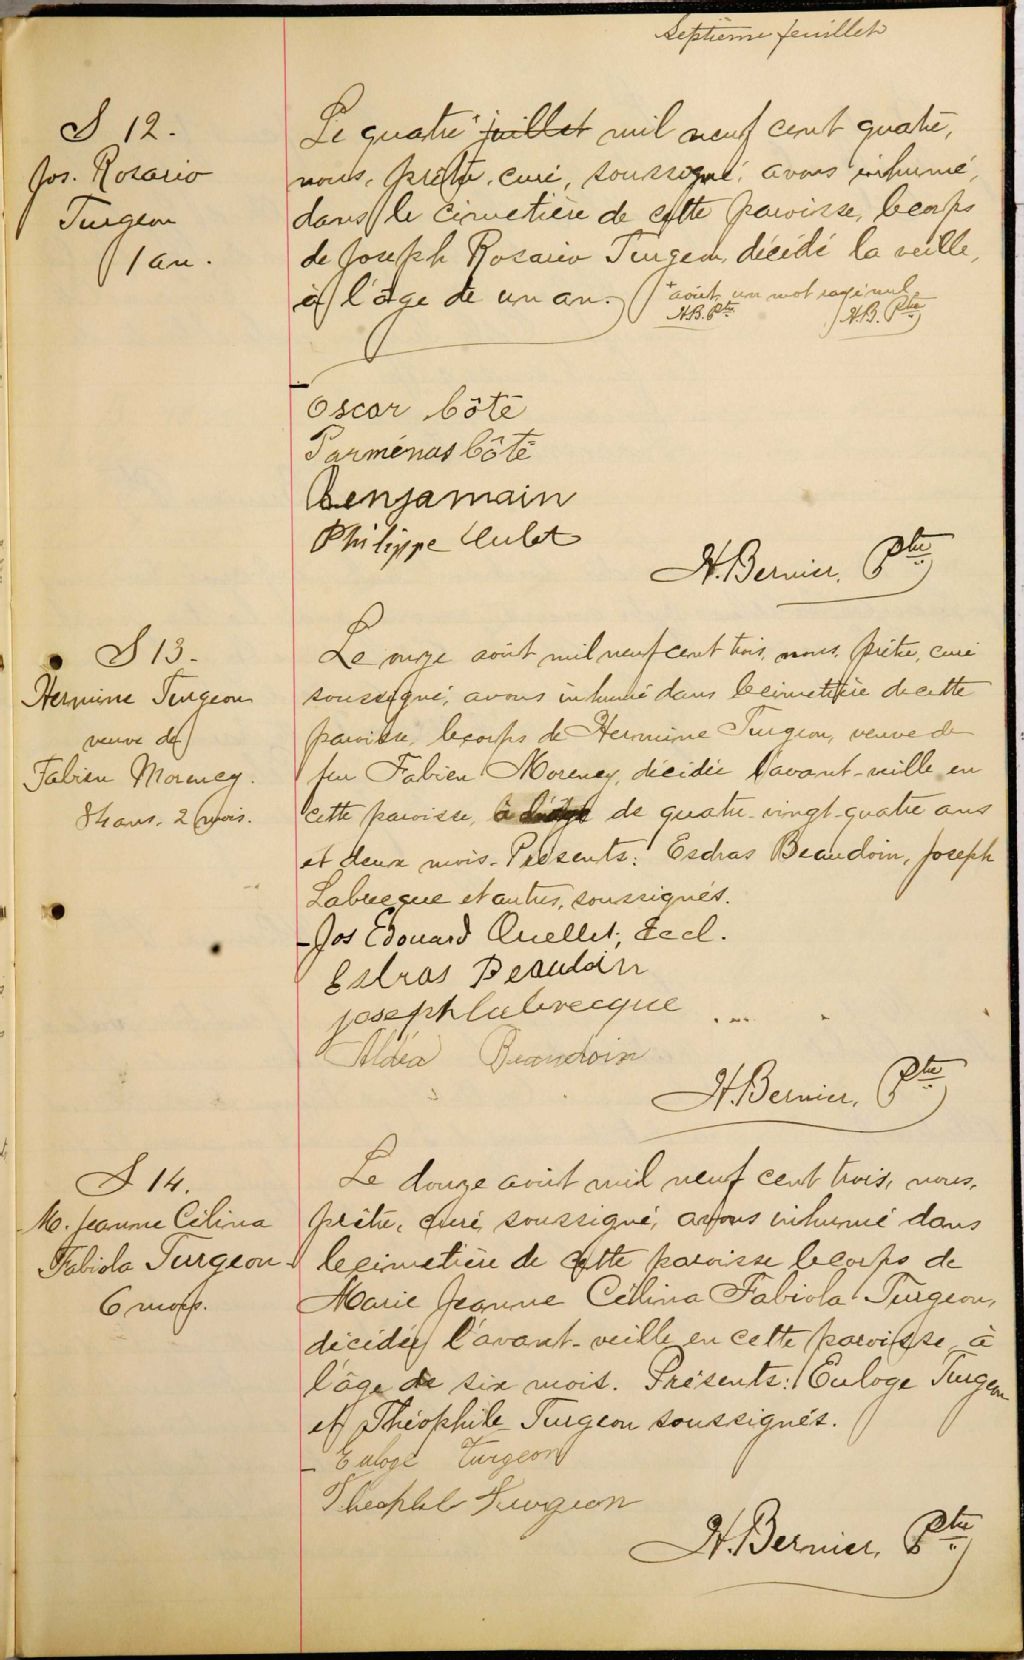 Septième feuillet
S 12.
Jos. Rosario
Turgeon
1 an.
Le quatre + juillet mil neuf cent quatre,
nous, prêtre, curé, soussigné, avons inhumé,
dans le cimetière de cette paroisse, le corps
de Joseph Rosario Turgeon, décédé la veille,
à l'âge de un an. + août, un mot rayé nul
H.B. Ptre H.B. Ptre
Oscar Côté
Parménas Côté
Benjamain
Philippe Aulet
H. Bernier, Ptre
S 13.
Hermine Turgeon
veuve de
Fabien Morency.
84 ans. 2 mois.
Le onze août mil neuf cent trois, nous, prêtre, curé
soussigné, avons inhumé dans le cimetière de cette
paroisse, le corps de Hermine Turgeon, veuve de
feu Fabien Morency, décédée l'avant-veille en
cette paroisse, à l'âge de quatre-vingt-quatre ans
et deux mois. Présents: Esdras Beaudoin, Joseph
Labrecque et autres, soussignés.
Jos Edouard Ouellet, Eccl.
Esdras Beaudoin
joseph labrecque
Aldéa Beaudoin
H. Bernier, Ptre
S 14.
M. Jeanne Célina
Fabiola Turgeon
6 mois.
Le douze août mil neuf cent trois, nous,
prêtre, curé, soussigné, avons inhumé dans
le cimetière de cette paroisse le corps de
Marie Jeanne Célina Fabiola Turgeon,
décédée l'avant-veille en cette paroisse, à
l'âge de six mois. Présents: Euloge Turgeon
et Théophile Turgeon soussignés.
Euloge Turgeon
Theophile Turgeon
H. Bernier, Ptre